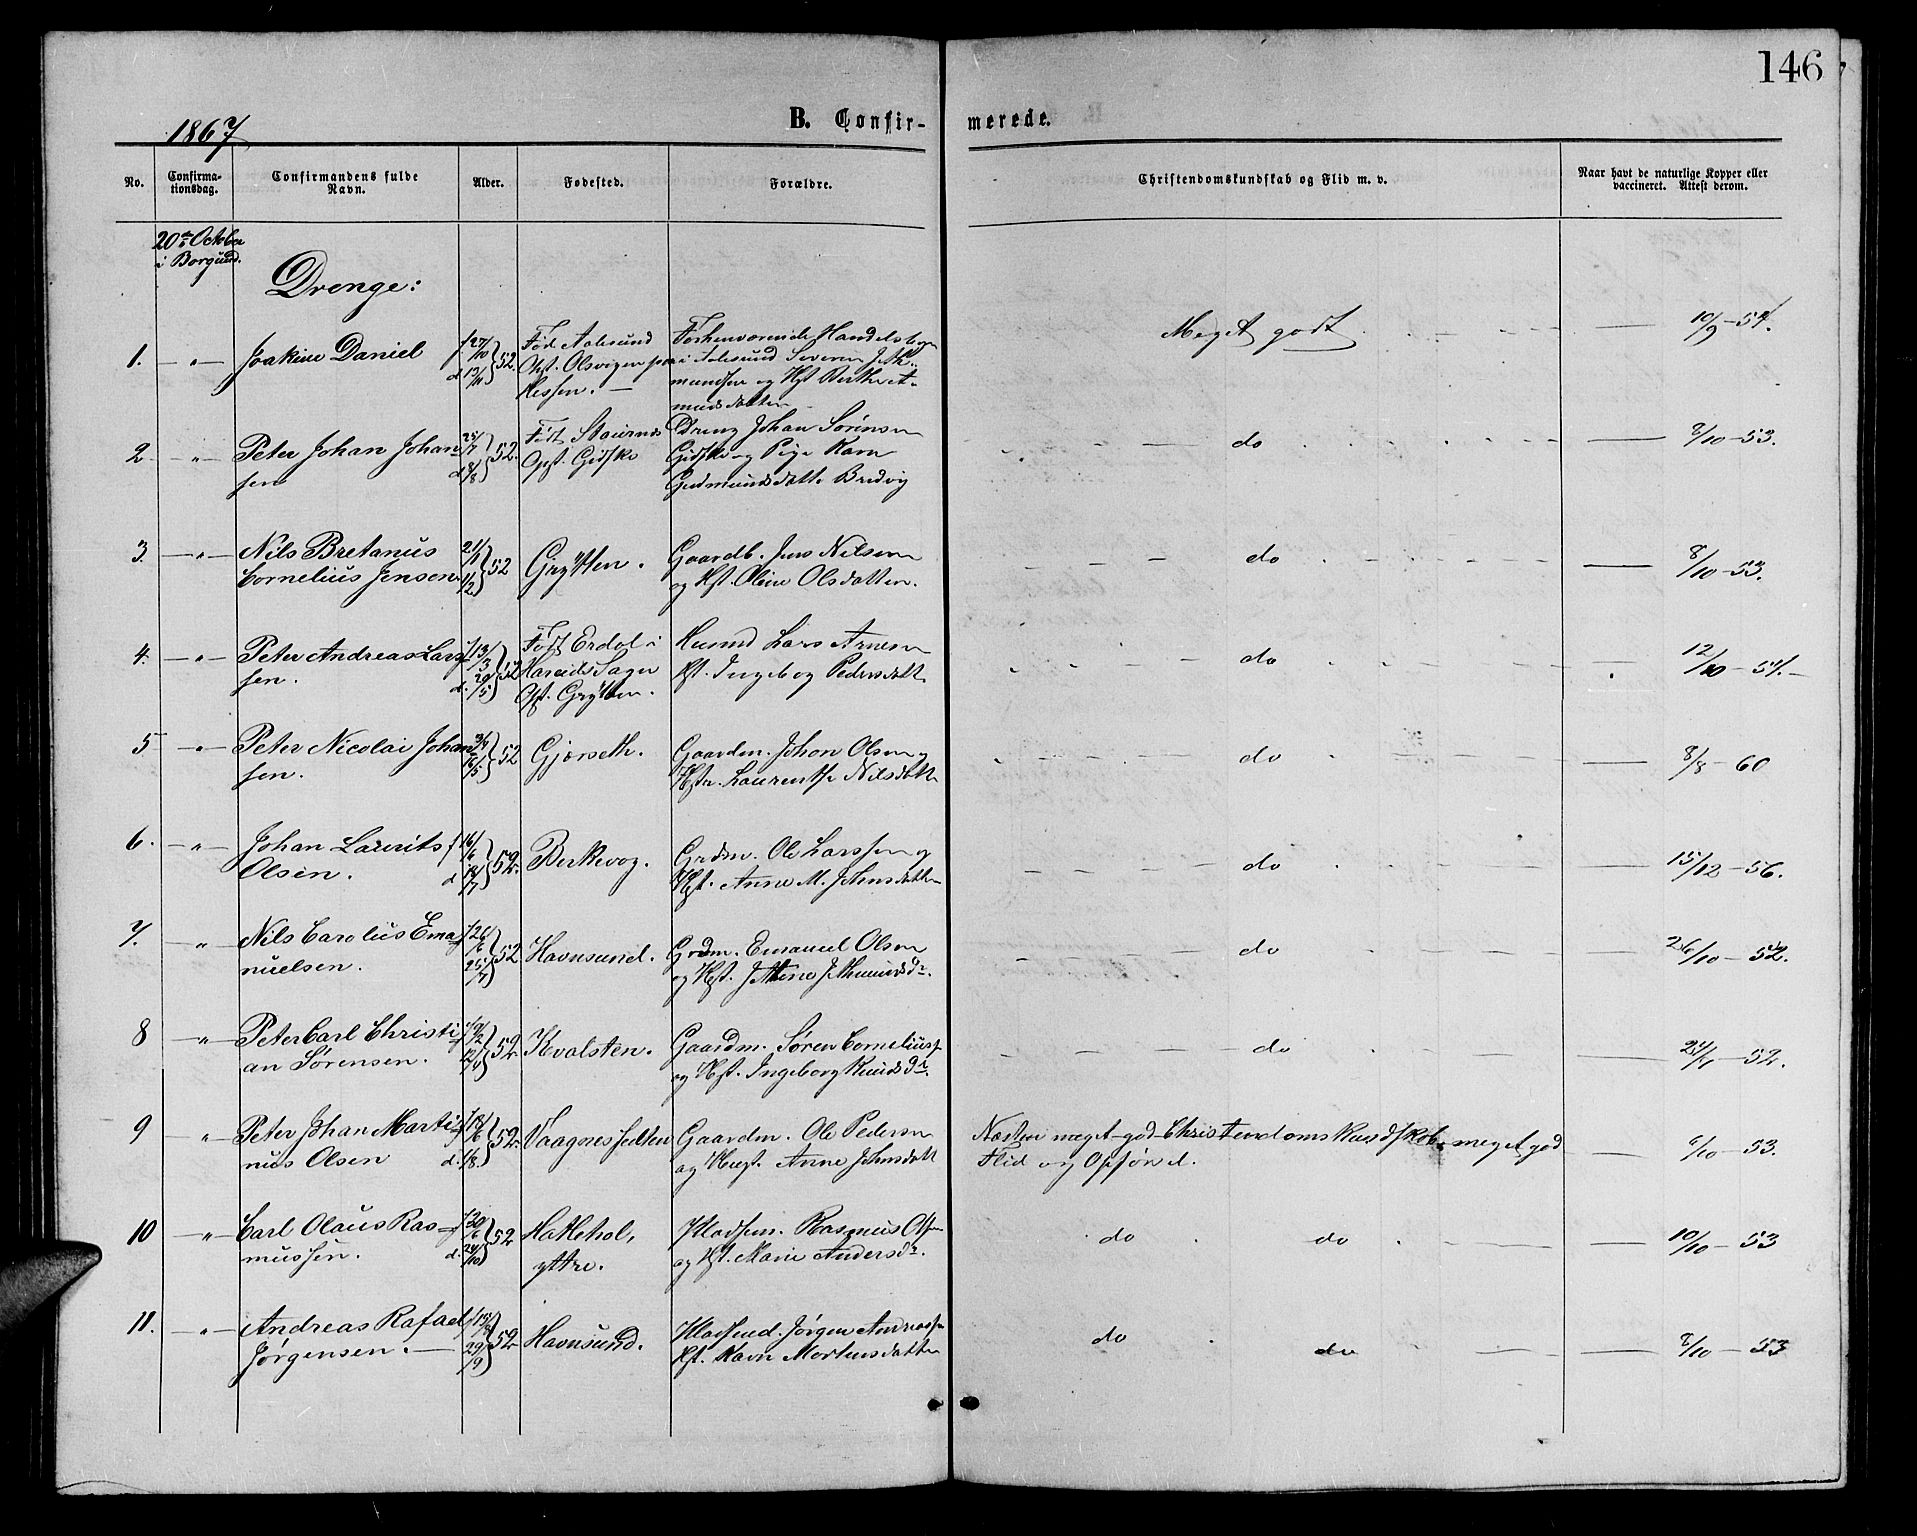 146
1867
B. Confir- merede.
No. Confirma- tionsdag. Confirmandens fulde Navn. Alder. Fødested. Forældre. Christendomskundskab og Flid m. v. Naar havt de naturlige Kopper eller vaccineret. Attest derom.
20de October
i Borgund.
Drenge:
1. — " — Joakim Daniel f 27/10 d 13/11 } 52. Født Aalesund
Opst. Olsvigen paa
Hessen. —
Forhenværende Handelsborger
i Aalesund Severin
og Hst Berthe
Meget godt 10/9 - 54.
2 " Peter Johan Johan=
sen 25/7 d 8/8 } 52. Født Stavrnes
Opst. Gidske
Dreng Johan Sørensen
Gidske og Pige Karn
Gudmundsdatter Bredvig
do 8/10 - 53.
3. — " — Nils Bretanus
Cornelius Jensen. 21/1 1/2 } 52 Grytten.
Gaardb. Jens Nilsen
og Hst. Oline Olsdatter.
do 8/10 - 53.
4. — " — Peter Andreas Lars=
sen. f 13/3 d. 20/5 } 52 Født Erdal i
Hareids Sogn
Opst. Grytten.
Husmd Lars Arnesen
Hst. Ingeborg Pedersdatt
do 12/10 - 54. —
5 — " — Peter Nicolai Johan
sen. 16/5 } 52 Gjørseth.
Gaardm. Johan Olsen og
Hstr. Laurentse Nilsdattr
do 8/8 - 60
6. — " — Johan Laurits
Olsen. f 16/6 d 18/7 } 52. Berkevog.
Grdm. Ole Larssen og
Hst. Anne M. Johnsdatter
do 15/12 - 56.
7. " Nils Carolus Ema=
nuelsen. f 26/6 25/7 } 52 Havnsund.
Grdm. Emanuel Olsen
og Hst. Jettine Jethmundsdr.
do 26/10 - 52.
8 — " — Peter Carl Christi=
an Sørensen. f 9/2 12/4 } 52 Kvalsten.
Gaardm. Søren Corneliuss
og Hst. Ingeborg Knudsdr.
do - 52.
9 " Peter Johan Marti=
nus Olsen f 18/6 d. 1/8 } 52 Vaagnes
Gaardm. Ole Pedersen
og Hust. Anne Johnsdatt
Næsten meget god Christendomskundskab, meget god
Flid og Opførsel.
/10 - 53.
10 — " — Carl Olaus Ras=
mussen. f 20/6 d. 24/10 } 52 Hatlehol,
yttre.
Pladsm. Rasmus Olsen
og Hst. Marie Andersdr.
do do 10/10 - 53
11. — " — Andreas Rafael
Jørgensen. — f 15/8 29/9 } 52 Havnsund.
Pladsmd. Jørgen Andreass
Hst. Karn Mortensdatter
do do 8/10 - 53